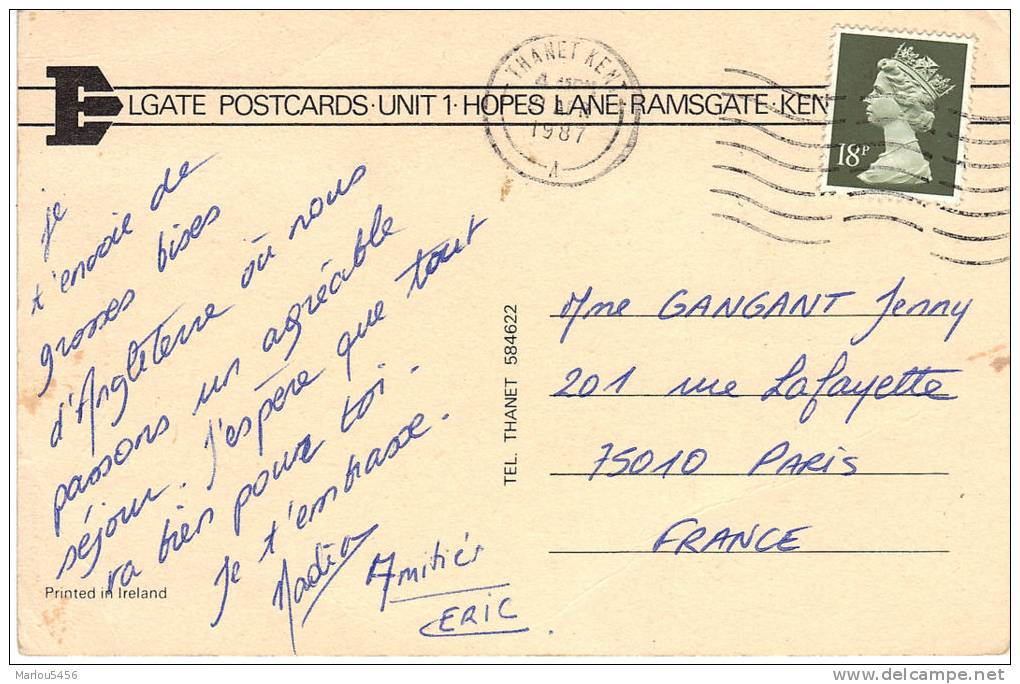 ELGATE POSTCARDS·UNIT 1·HOPES LANE, RAMSGATE·KEN
THANET KENT
1987
A
18P
je
t'envoie de
grosses bises
d'Angleterre où nous
passons un agréable
séjour. J'espère que tout
va bien pour toi.
Je t'embrasse.
Nadia
Amitiés
ERIC.
Printed in Ireland
TEL. THANET 584622
Mme GANGANT Jenny
201 rue Lafayette
75010 PARIS
FRANCE
Marlou5456
delcampe.net